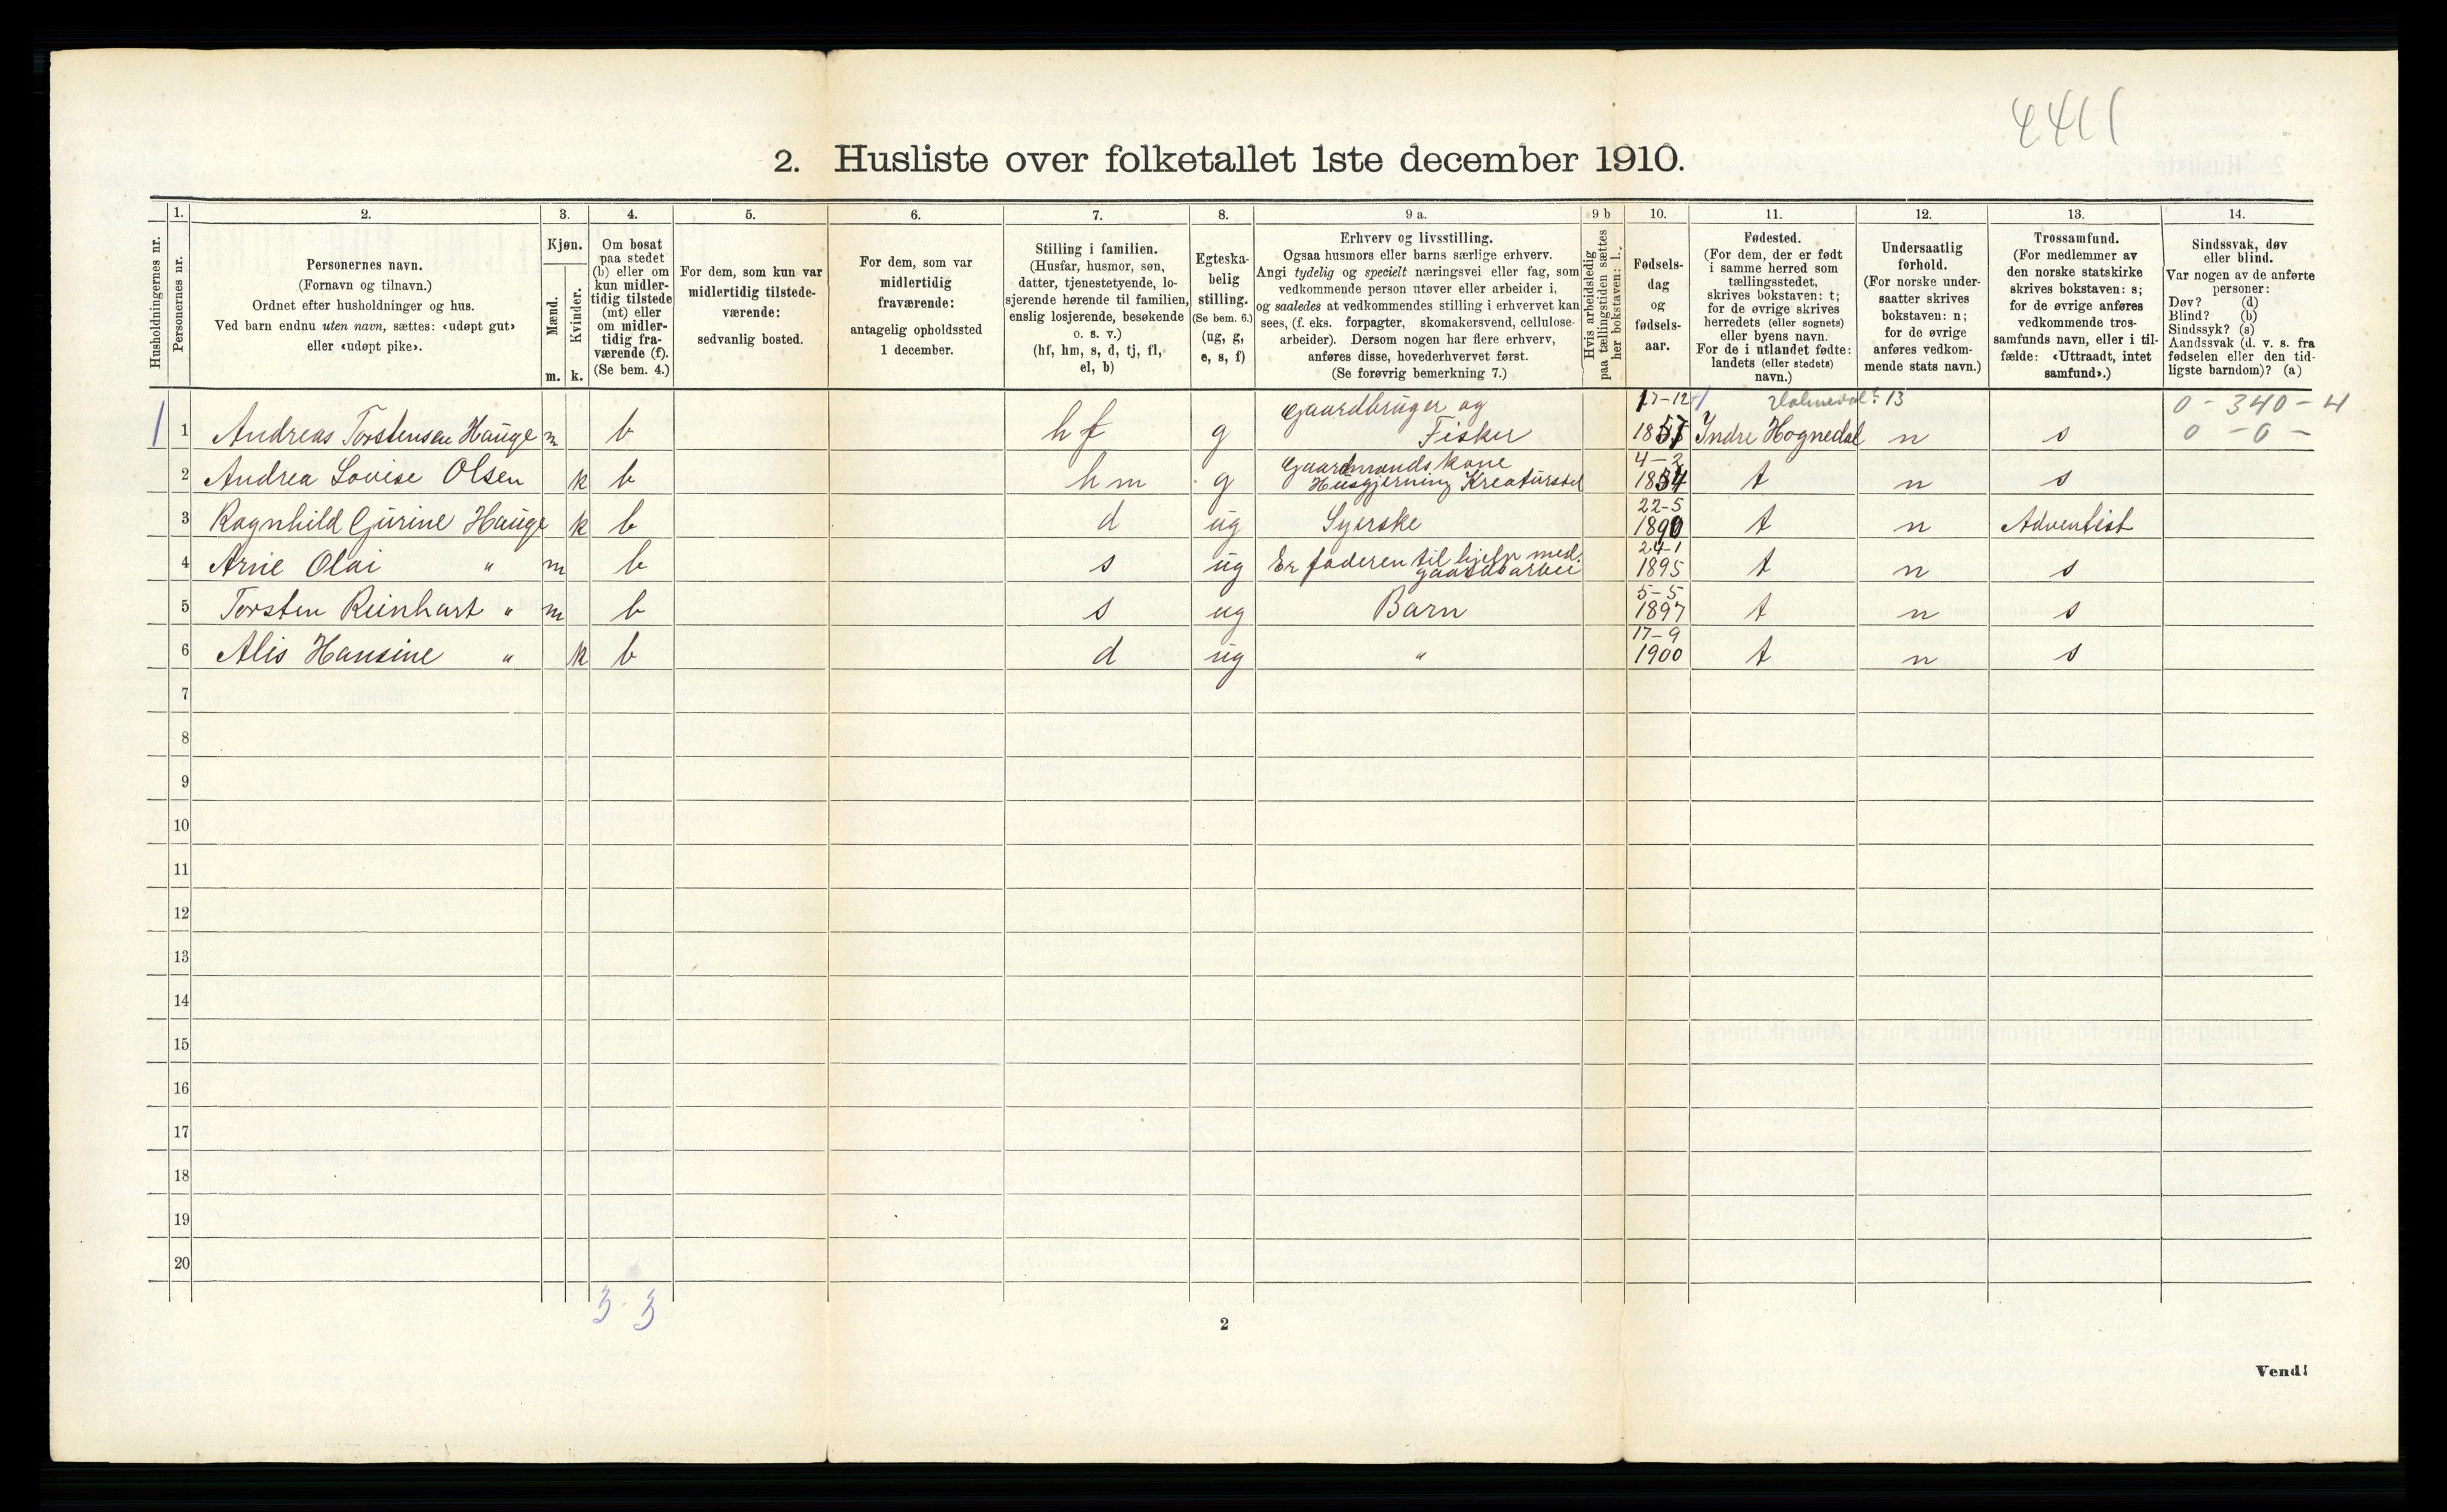 4411
2. Husliste over folketallet 1ste december 1910.
Husholdningernes nr.
1.
Personernes nr.
2.
Personernes navn.
(Fornavn og tilnavn.)
Ordnet efter husholdninger og hus.
Ved barn endnu uten navn, sættes: «udøpt gut»
eller «udøpt pike».
3.
Kjøn.
Mænd.
Kvinder.
m. k.
4.
Om bosat
paa stedet
(b) eller om
kun midler-
tidig tilstede
(mt) eller
om midler-
tidig fra-
værende (f).
(Se bem. 4.)
5.
For dem, som kun var
midlertidig tilstede-
værende:
sedvanlig bosted.
6.
For dem, som var
midlertidig
fraværende:
antagelig opholdssted
1 december.
7.
Stilling i familien.
(Husfar, husmor, søn,
datter, tjenestetyende, lo-
sjerende hørende til familien,
enslig losjerende, besøkende
o. s. v.)
(hf, hm, s, d, tj, fl,
el, b)
8.
Egteska-
belig
stilling.
(Se bem. 6.)
(ug, g,
e, s, f)
9 a.
Erhverv og livsstilling.
Ogsaa husmors eller barns særlige erhverv.
Angi tydelig og specielt næringsvei eller fag, som
vedkommende person utøver eller arbeider i,
og saaledes at vedkommendes stilling i erhvervet kan
sees, (f. eks. forpagter, skomakersvend, cellulose-
arbeider). Dersom nogen har flere erhverv,
anføres disse, hovederhvervet først.
(Se forøvrig bemerkning 7.)
9 b
Hvis arbeidsledig
paa tællingstiden sættes
her bokstaven: l.
10.
Fødsels-
dag
og
fødsels-
aar.
11.
Fødested.
(For dem, der er født
i samme herred som
tællingsstedet,
skrives bokstaven: t;
for de øvrige skrives
herredets (eller sognets)
eller byens navn.
For de i utlandet fødte:
landets (eller stedets)
navn.)
12.
Undersaatlig
forhold.
(For norske under-
saatter skrives
bokstaven: n;
for de øvrige
anføres vedkom-
mende stats navn.)
13.
Trossamfund.
(For medlemmer av
den norske statskirke
skrives bokstaven: s;
for de øvrige anføres
vedkommende tros-
samfunds navn, eller i til-
fælde: «Uttraadt, intet
samfund».)
14.
Sindssvak, døv
eller blind.
Var nogen av de anførte
personer:
Døv? (d)
Blind? (b)
Sindssyk? (s)
Aandssvak (d. v. s. fra
fødselen eller den tid-
ligste barndom)? (a)
Gaardbruger og 17-12 13 0-340-4
1 1 Andreas Torstensen Hauge m b hf g Fisker 1857 Indre Hognedal n s 0-0-
Gaardmands kone 4-2
2 Andrea Lovise Olsen k b hm g Husgjerning Kreaturstel 1854 t n s
22-5
3 Ragnhild Gurine Hauge k b d ug Syerske 1890 t n Adventist
Er faderen til hjelp med 24-1
4 Arne Olai " m b s ug 1895 t n s
5-5
5 Torsten Reinhart " m b s ug Barn 1897 t n s
17-9
6 Alis Hansine " k b d ug " 1900 t n s
7
8
9
10
11
12
13
14
15
16
17
18
19
20
3 3
2
Vend!